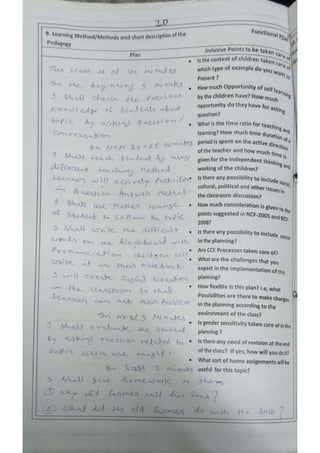 20
9. Learning Method/Methods and short description of the Pedagogy
Functional
Plan
Inclusive Points to be taken care of
This class is of 40 minutes
In the beginning 5 minutes
I shall check the Previous
Knowledge of students about
topic by asking question/
Conversation.
In Next 20-25 minutes
I shall teach student by using
different teaching Method.
Learner will actively participate
in Question Answer Method
I shall use Mother tounge
of student to explain the topic
I shall write the difficult
words on the blackboard with
Pronunciation children will
write it in their Notebook.
I will create Joyful situation
in the classroom so that
learner can ask their Problem
In Next 5 Minutes
I shall evaluate the student
by asking question related to
topic which are taught.
In last 5 minutes
I shall give homework to them.
① Why did farmer call his sons?
② What did the old farmer do with the stick?
• Is the context of children taken care of
which type of example do you want to
Present ?
• How much Opportunity of self learning
by the children have? How much
opportunity do they have for asking
question?
• What is the time ratio for teaching and
learning? How much time duration of a
period is spent on the active direction
of the teacher and how much time is
given for the independent thinking and
working of the children?
• Is there any possibility to include social,
cultural, political and other issues in
the classroom discussion?
• How much consideration is given to the
points suggested in NCF-2005 and BCF-
2008?
• Is there any possibility to include social
in the planning?
• Are CCE Processes taken care of?
• What are the challenges that you
expect in the implementation of this
planning?
• How flexible is this plan? i.e, what
Possibilities are there to make changes
in the planning according to the
environment of the class?
• Is gender sensitivity taken care of in the
planning ?
• Is there any need of revision at the end
of the class? If yes, how will you do it?
• What sort of home assignments will be
useful for this topic?